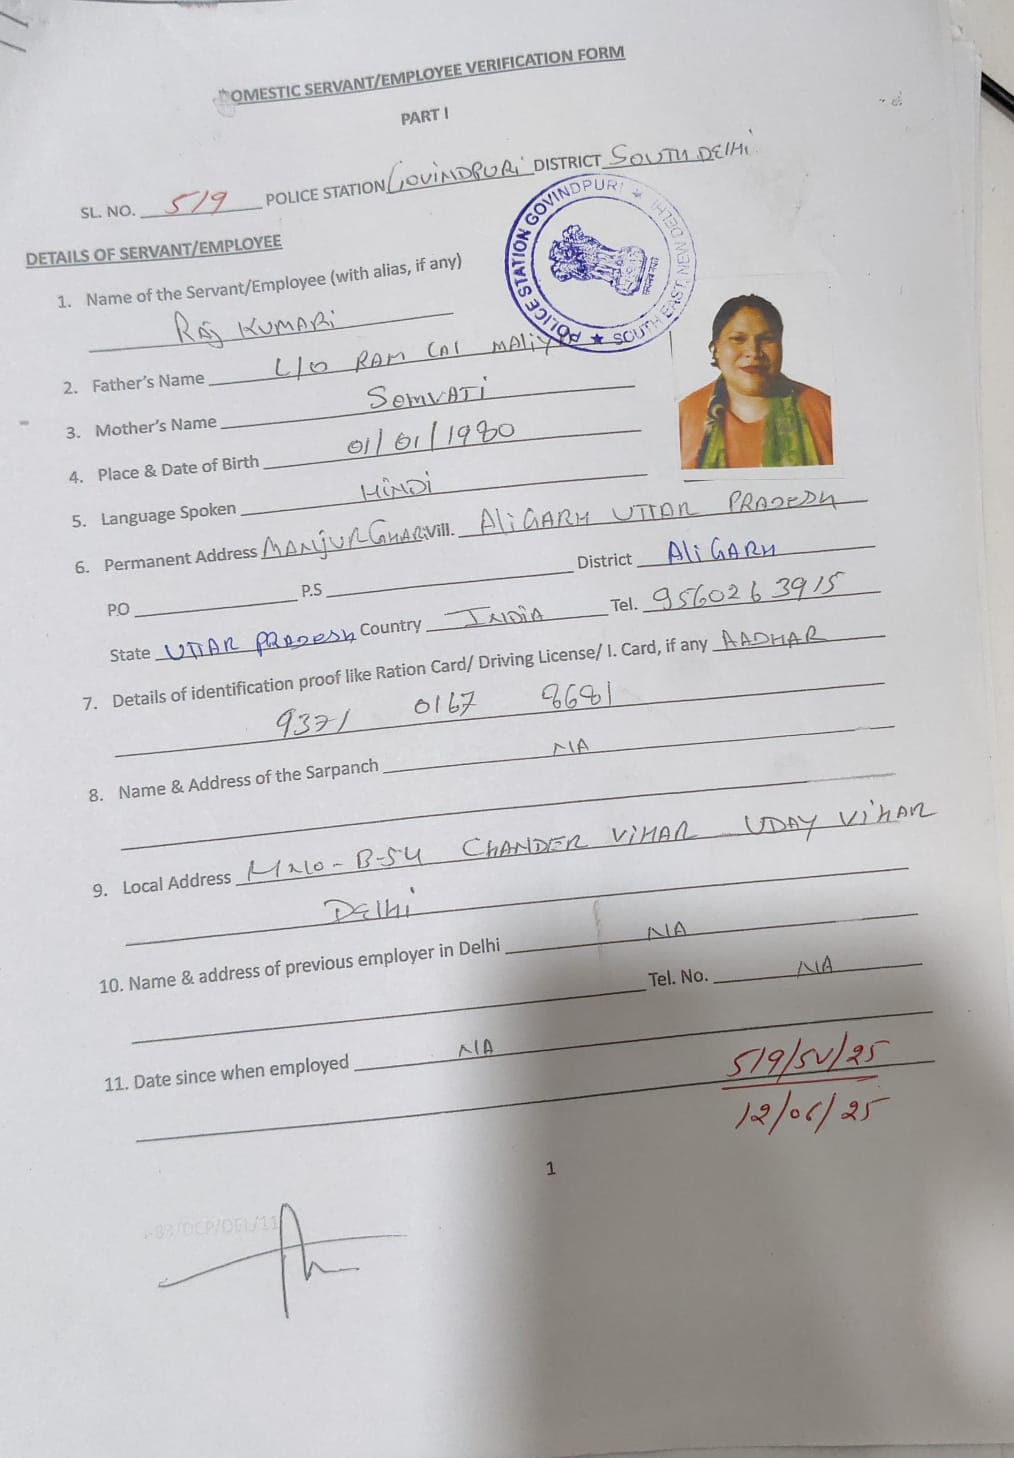 DOMESTIC SERVANT/EMPLOYEE VERIFICATION FORM
PART I
SL. NO. 519 POLICE STATION GOVINDPURI DISTRICT SOUTH DELHI
POLICE STATION GOVINDPURI ★ SOUTH EAST, NEW DELHI ★
DETAILS OF SERVANT/EMPLOYEE
1. Name of the Servant/Employee (with alias, if any)
RAJ KUMARI
2. Father's Name L/O RAM LAL
3. Mother's Name SOMVATI
4. Place & Date of Birth 01/01/1980
5. Language Spoken HINDI
6. Permanent Address Vill. ALIGARH UTTAR PRADESH
PO P.S District ALIGARH
State UTTAR PRADESH Country INDIA Tel. 9560263915
7. Details of identification proof like Ration Card/ Driving License/ I. Card, if any AADHAR
9371 0167 8681
8. Name & Address of the Sarpanch NIA
9. Local Address B-54 CHANDER VIHAR UDAY VIHAR
DELHI
10. Name & address of previous employer in Delhi NIA
Tel. No. NIA
11. Date since when employed NIA
519/SV/25
12/06/25
1